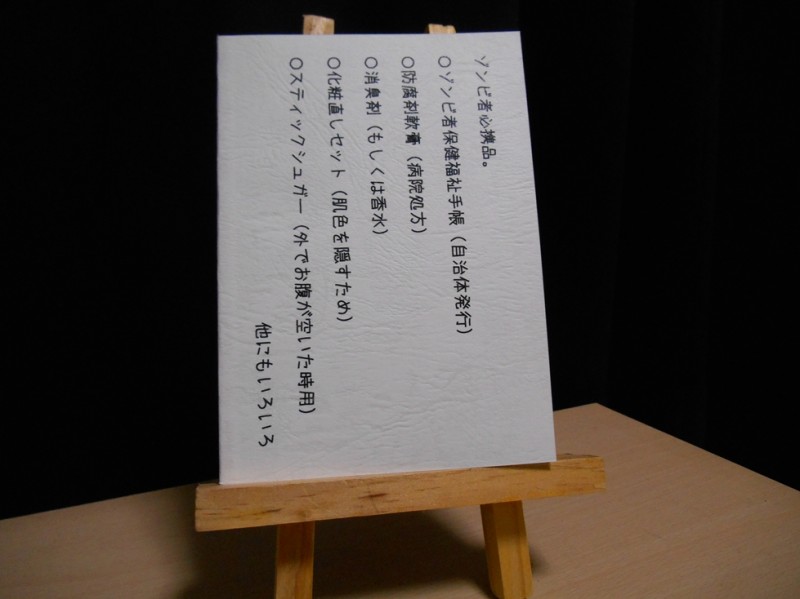 ゾンビ者必携品。
○ゾンビ者保健福祉手帳（自治体発行）
○防腐剤軟膏（病院処方）
○消臭剤（もしくは香水）
○化粧直しセット（肌色を隠すため）
○スティックシュガー（外でお腹が空いた時用）
他にもいろいろ